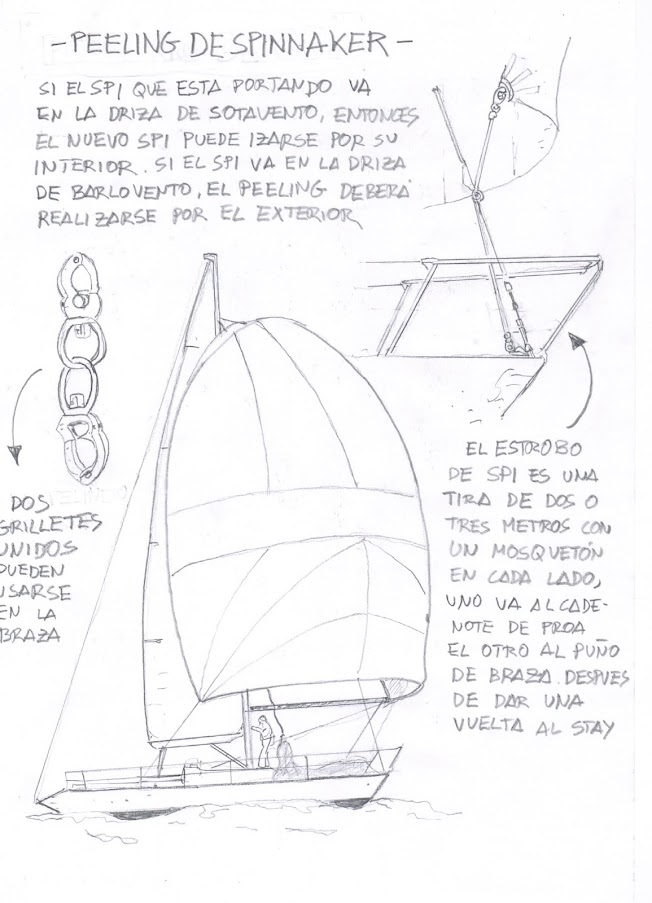 - PEELING DE SPINNAKER -
SI EL SPI QUE ESTA PORTANDO VA
EN LA DRIZA DE SOTAVENTO, ENTONCES
EL NUEVO SPI PUEDE IZARSE POR SU
INTERIOR. SI EL SPI VA EN LA DRIZA
DE BARLOVENTO, EL PEELING DEBERÁ
REALIZARSE POR EL EXTERIOR
DOS
GRILLETES
UNIDOS
PUEDEN
USARSE
EN LA
BRAZA
EL ESTROBO
DE SPI ES UNA
TIRA DE DOS O
TRES METROS CON
UN MOSQUETÓN
EN CADA LADO,
UNO VA AL CADE-
NOTE DE PROA
EL OTRO AL PUÑO
DE BRAZA. DESPUES
DE DAR UNA
VUELTA AL STAY